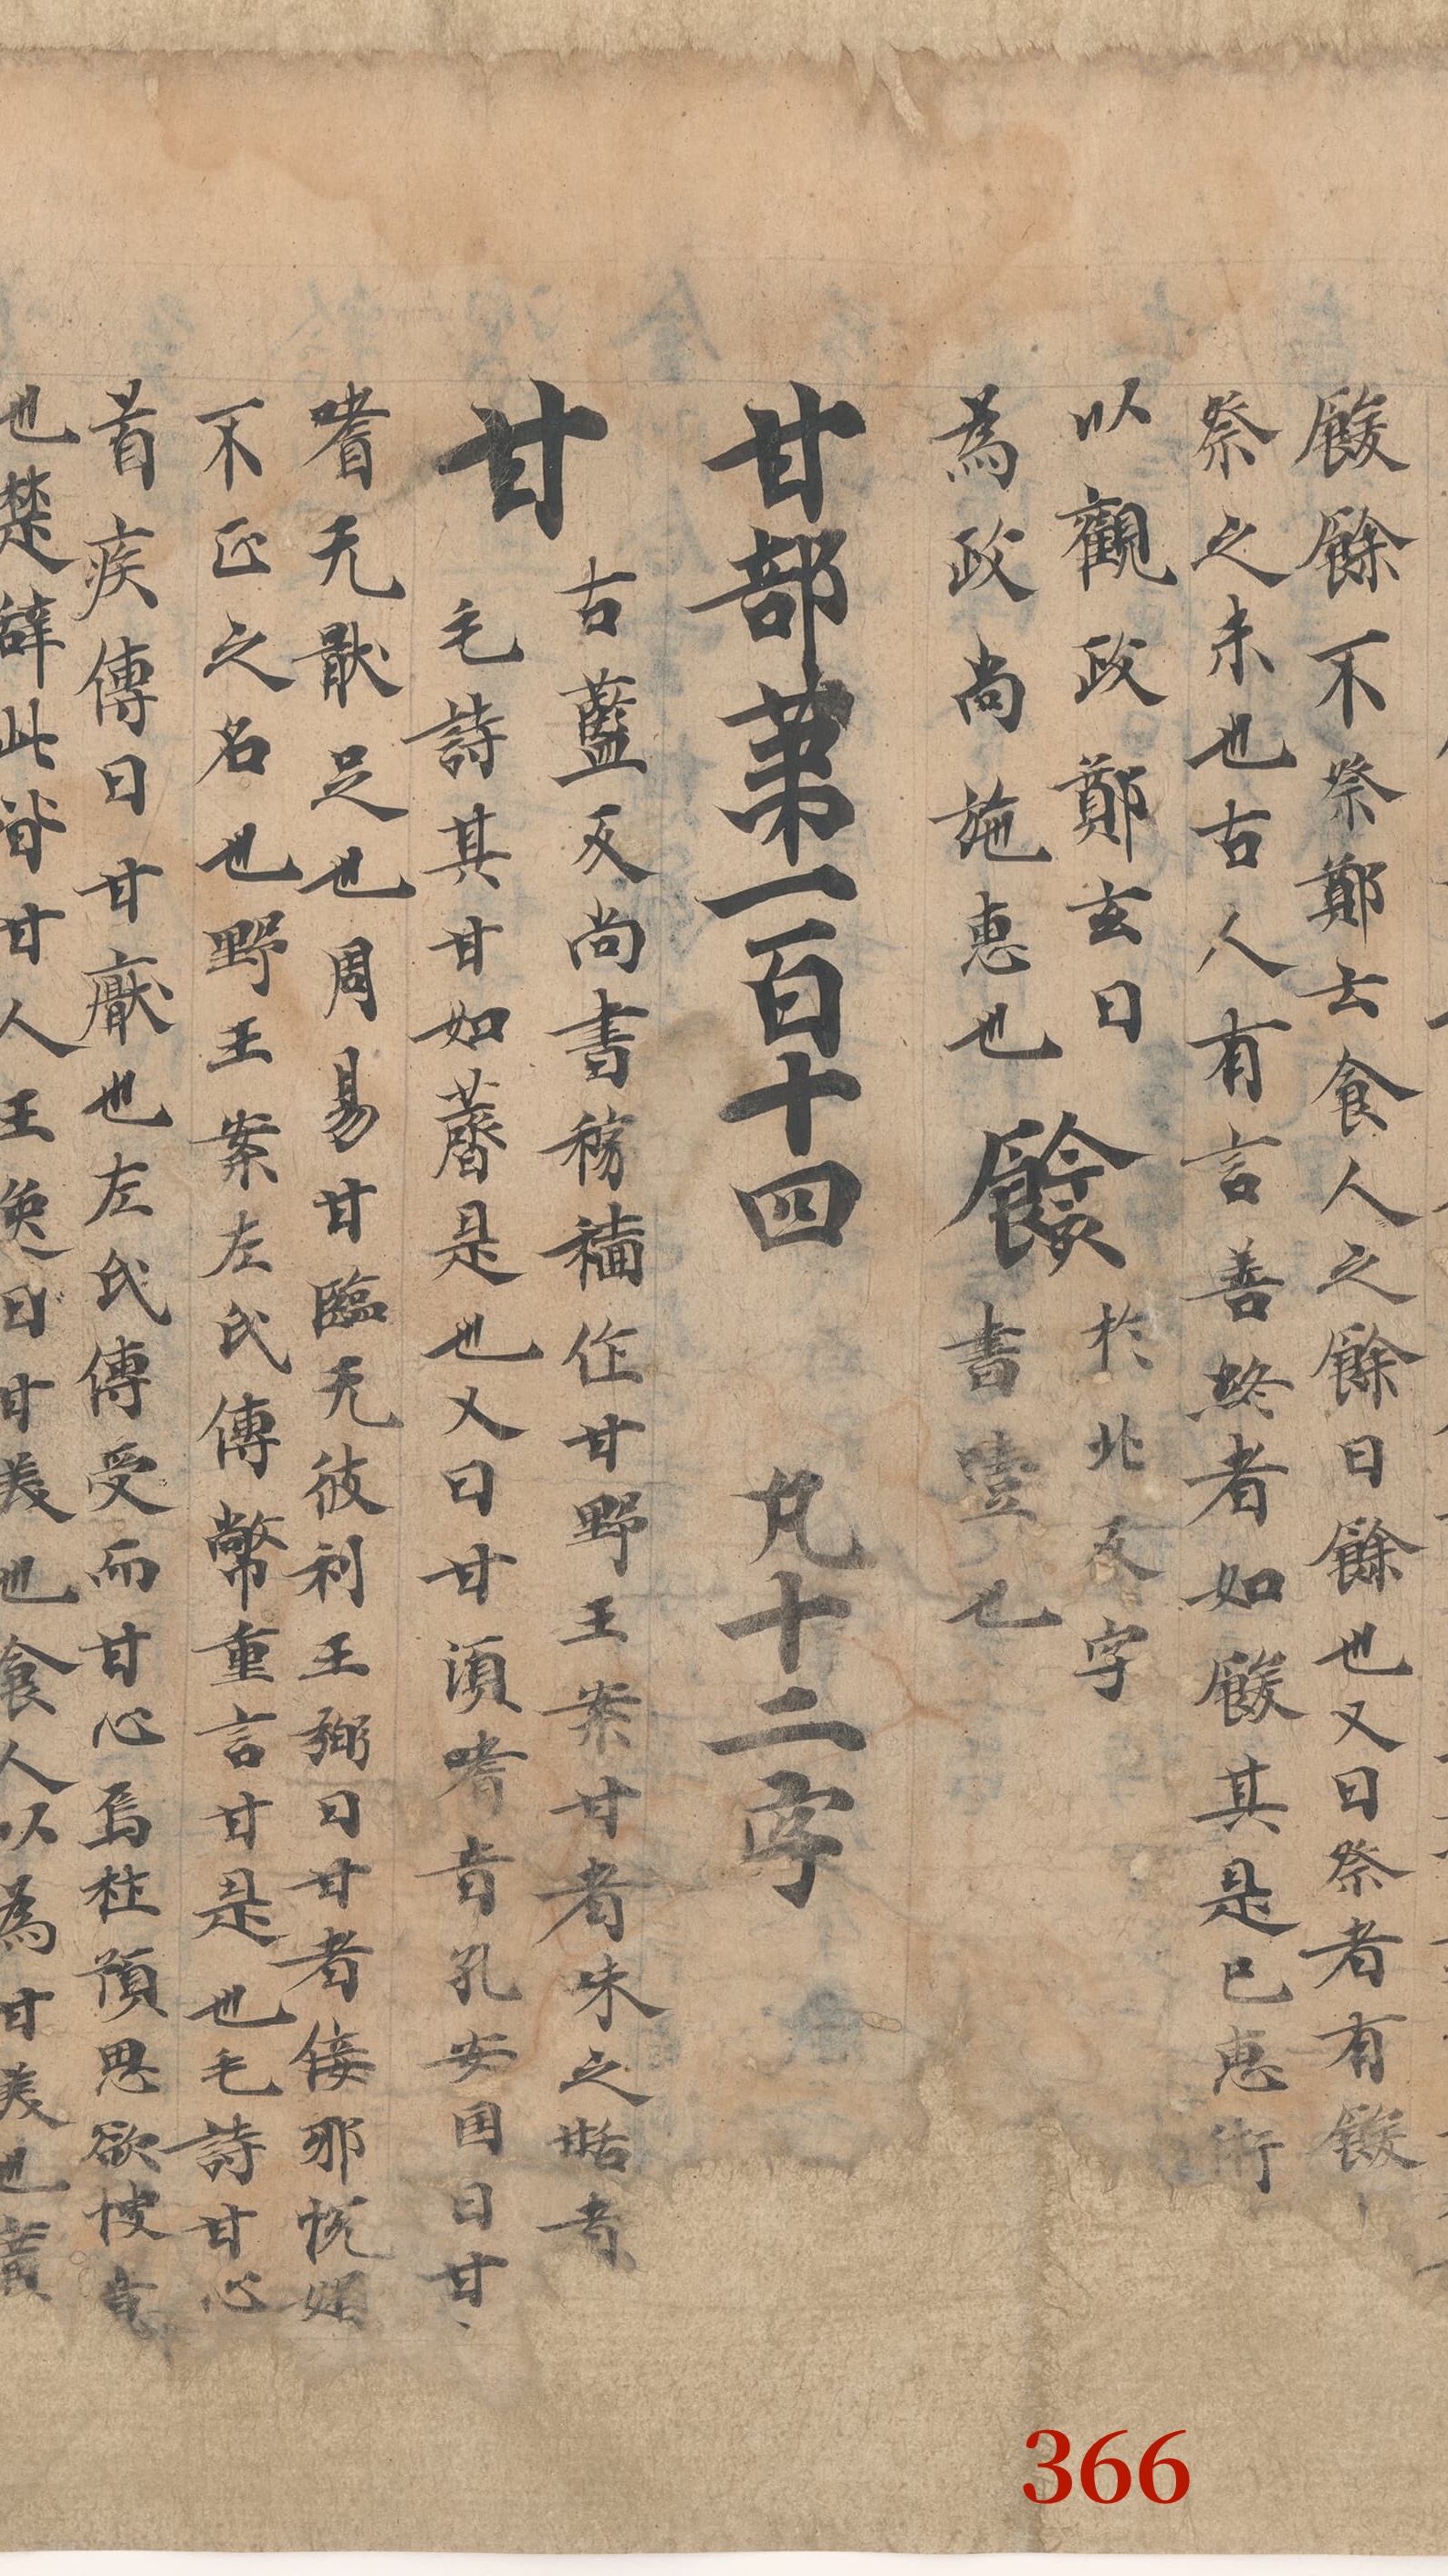 餕餘不祭鄭玄食人之餘曰餘也又曰祭者有餕
祭之末也古人有言善終者如餕其是已惠術
以觀政鄭玄曰
為政尚施惠也
䭘
於北反字
書壹也
甘部第一百十四 凡十二字
甘
古藍反尚書稼穡作甘野王案甘者味之甛者
毛詩其甘如薺是也又曰甘湏嗜音孔安国曰甘
嗜无猒足也周易甘臨无攸利王弼曰甘者佞邪恱媚
不正之名也野王案左氏傳幣重言甘是也毛詩甘心
首疾傳曰甘猒也左氏傳受而甘心焉杜預思欲快意
也楚辞此皆甘人王逸曰甘美也食人以為甘美也
366